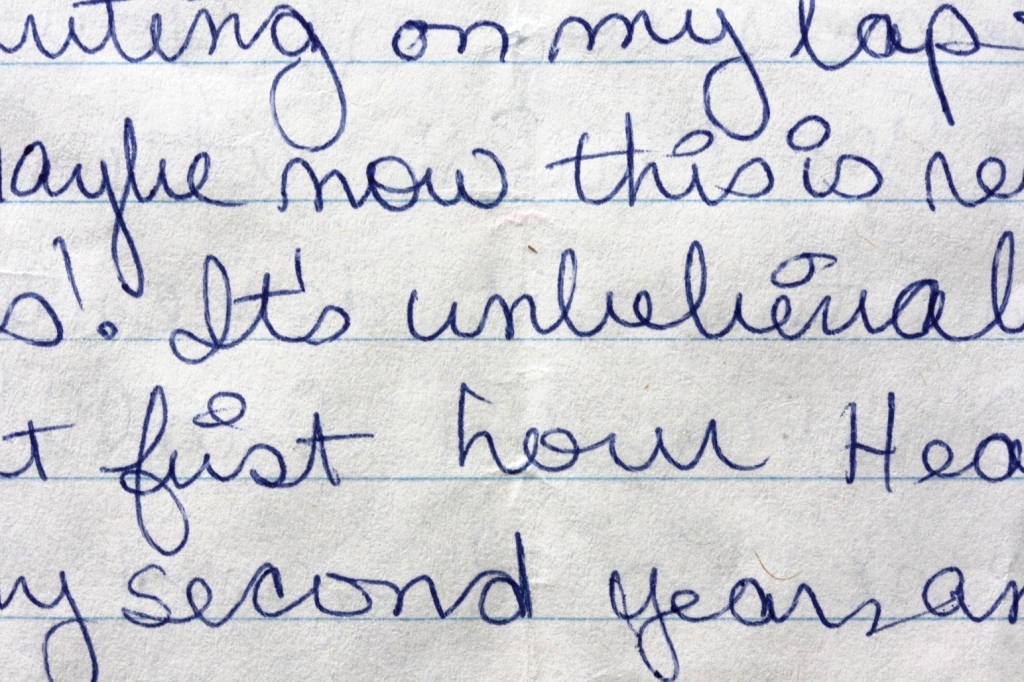 uting on my lap
aybe now this is re
s!. It's unbelieval
t first hour Hea
y second years an